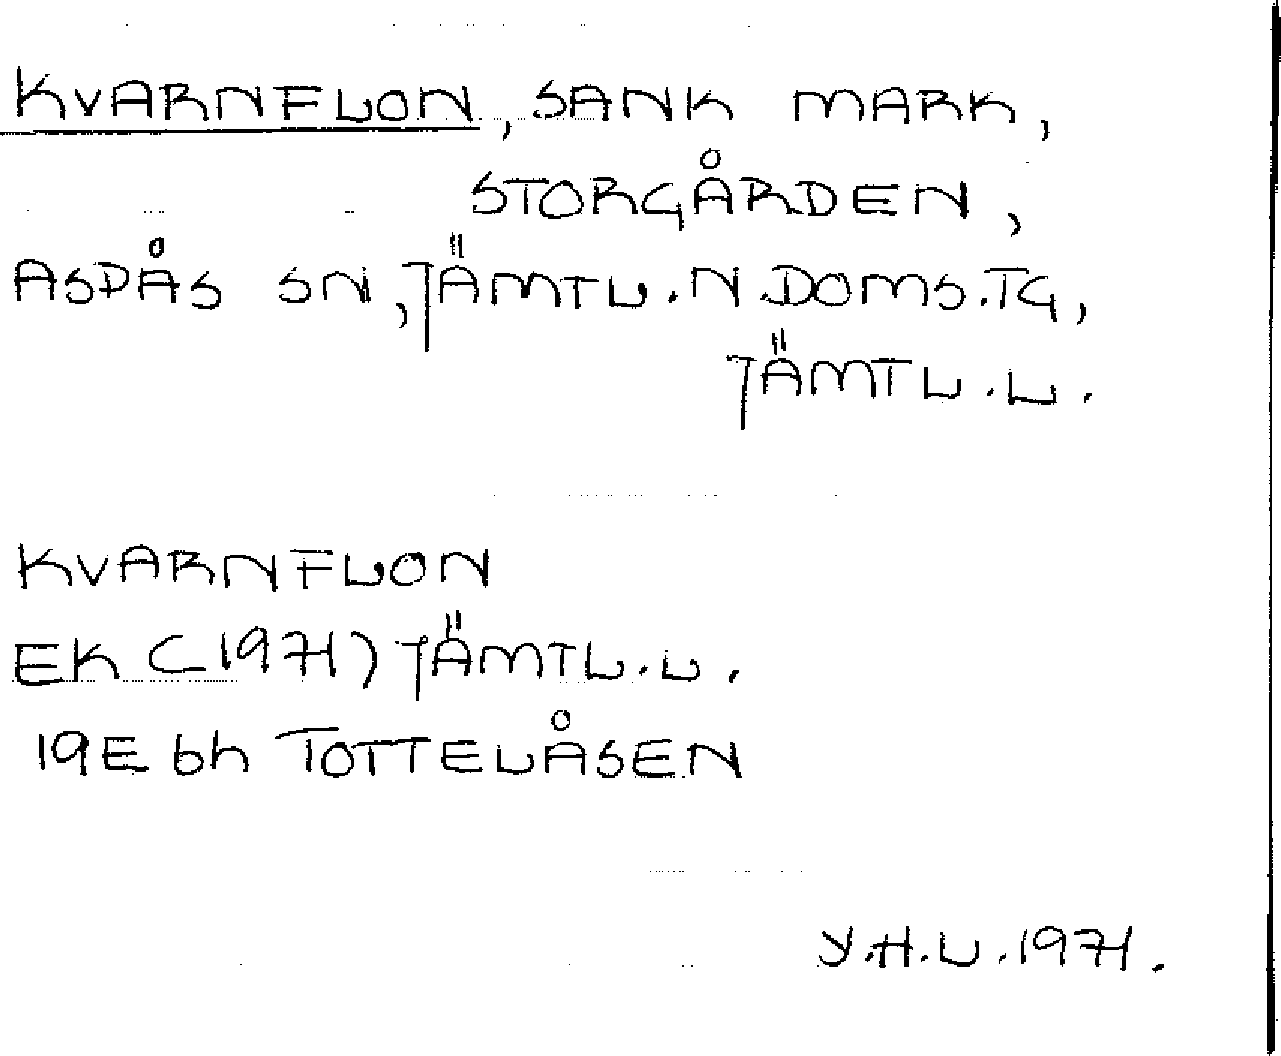 KVARNFLON, SANK MARK,
STORGÅRDEN,
ASPÅS SN, JÄMTL. N. DOMS. TG,
JÄMTL. L.
KVARNFLON
EK (1971) JÄMTL. L.
19E bh TOTTELÅSEN
Y.H.L. 1971.